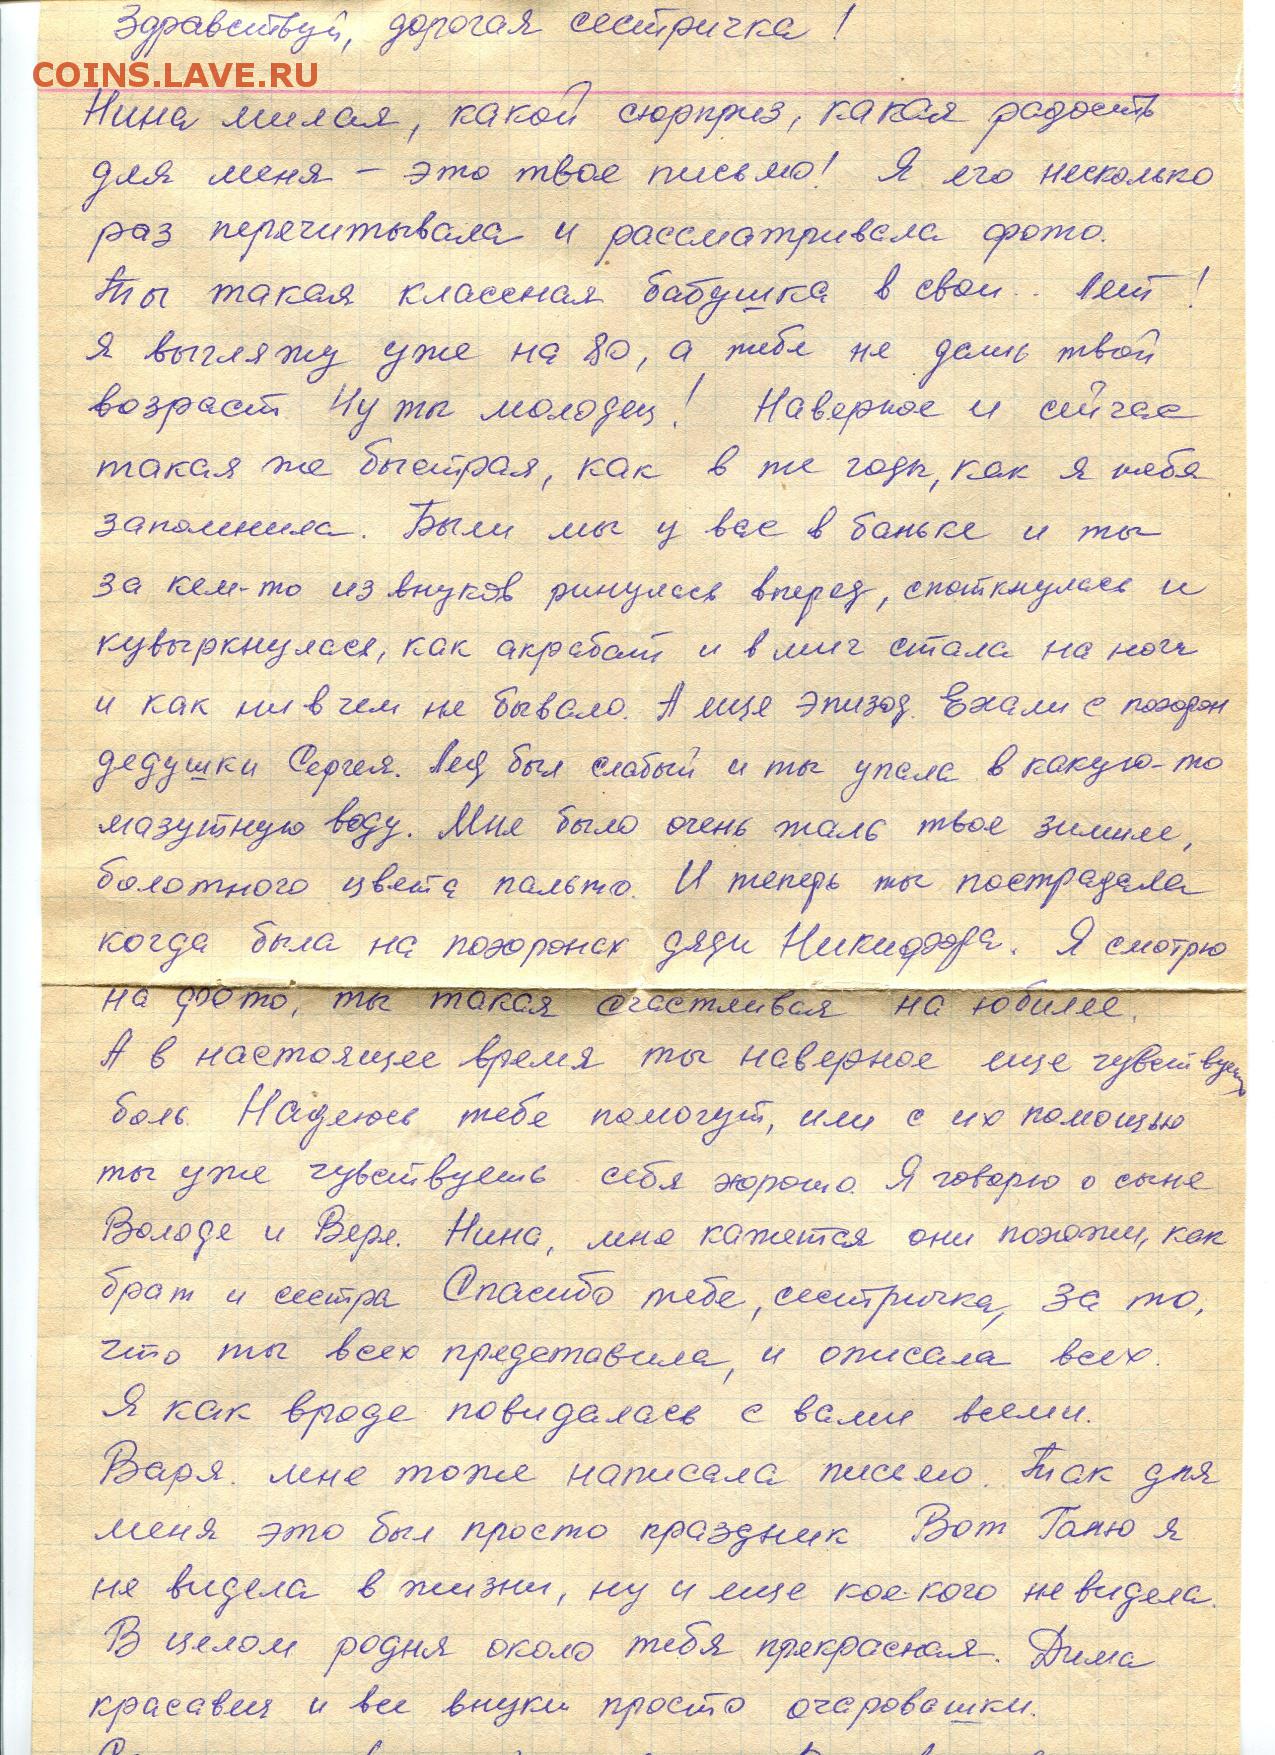 Здравствуй, дорогая сестричка!
COINS.LAVE.RU
Нина милая, какой сюрприз, какая радость
для меня – это твое письмо! Я его несколько
раз перечитывала и рассматривала фото.
Ты такая классная бабушка в свои.. лет!
Я выгляжу уже на 80, а тебе не дашь твой
возраст Ну ты молодец! Наверное и сейчас
такая же быстрая, как в те годы, как я тебя
запомнила. Были мы у вас в баньке и ты
за кем-то из внуков ринулась вперед, споткнулась и
кувыркнулася, как акрабат и вмиг стала на ноги
и как ни в чем не бывало. А еще эпизод. Ехали с похорон
дедушки Сергея. Лед был слабый и ты упала в какую-то
мазутную воду. Мне было очень жаль твое зимнее,
болотного цвета пальто. И теперь ты пострадала
когда была на похоронах дяди Никифора. Я смотрю
на фото, ты такая счастливая на юбилее.
А в настоящее время ты наверное еще чувствуешь
боль. Надеюсь тебе помогут, или с их помощью
ты уже чувствуешь себя хорошо. Я говорю о сыне
Володе и Вере. Нина, мне кажется они похожи, как
брат и сестра Спасибо тебе, сестричка, за то,
что ты всех представила, и описала всех.
Я как вроде повидалась с вами всеми.
Варя. мне тоже написала письмо. Так для
меня это был просто праздник Вот Ганю я
не видела в жизни, ну и еще кое-кого не видела.
В целом родня около тебя прекрасная. Дима
красавец и все внуки просто очаровашки.